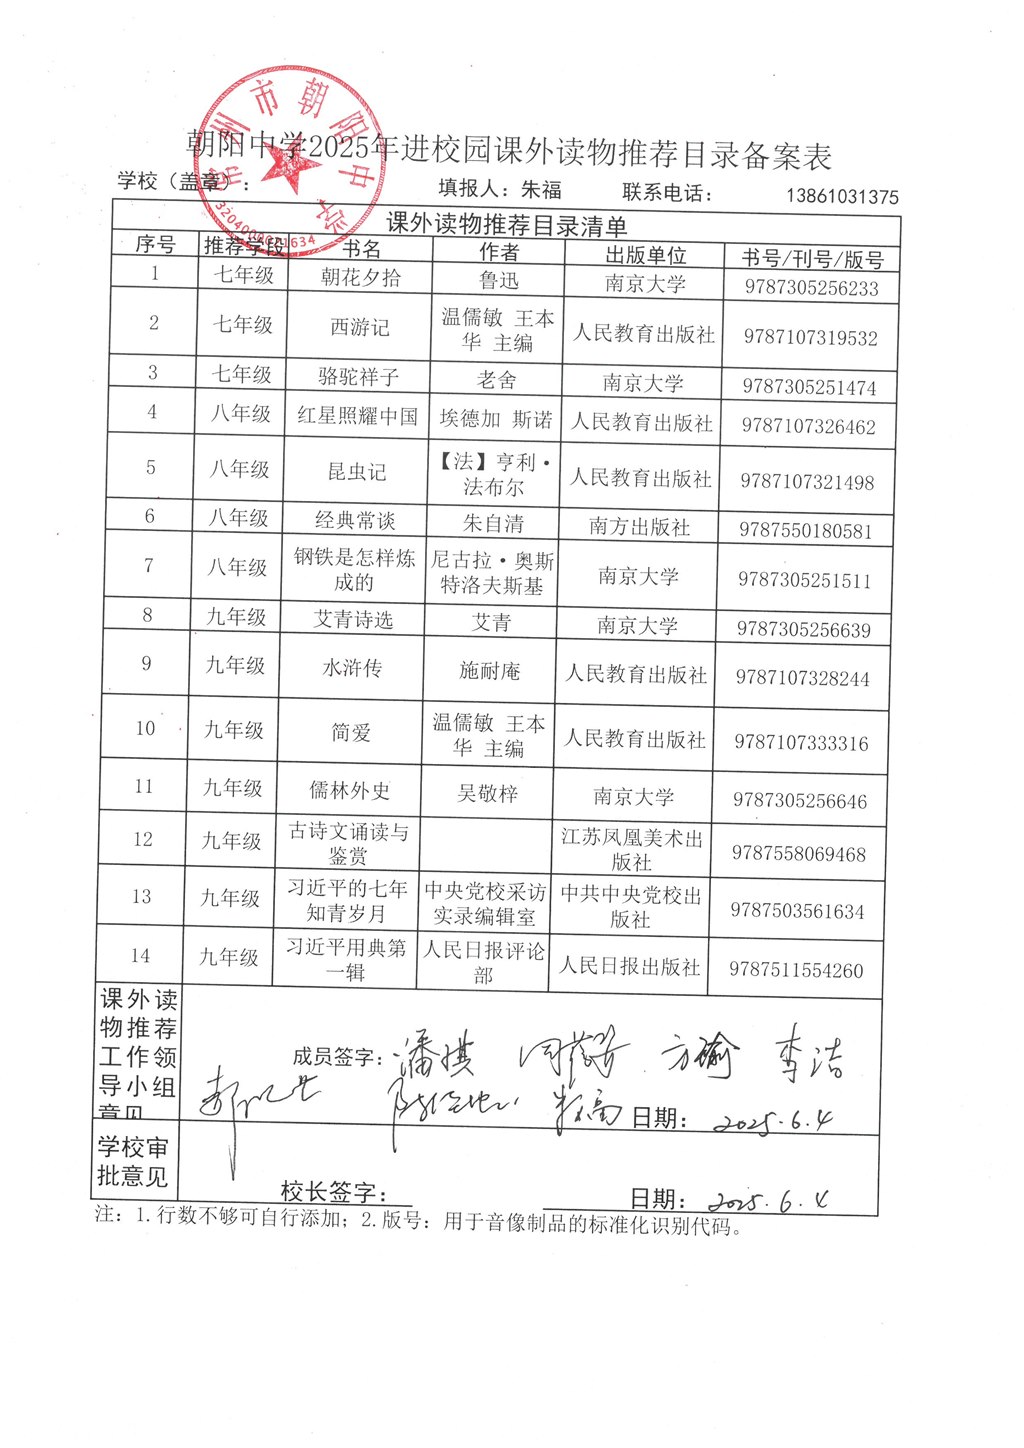 常州市朝阳中学
3204000021634
朝阳中学2025年进校园课外读物推荐目录备案表
学校（盖章）： 填报人：朱福 联系电话： 13861031375
课外读物推荐目录清单
序号 推荐学段 书名 作者 出版单位 书号/刊号/版号
1 七年级 朝花夕拾 鲁迅 南京大学 9787305256233
2 七年级 西游记 温儒敏 王本华 主编 人民教育出版社 9787107319532
3 七年级 骆驼祥子 老舍 南京大学 9787305251474
4 八年级 红星照耀中国 埃德加 斯诺 人民教育出版社 9787107326462
5 八年级 昆虫记 【法】亨利·法布尔 人民教育出版社 9787107321498
6 八年级 经典常谈 朱自清 南方出版社 9787550180581
7 八年级 钢铁是怎样炼成的 尼古拉·奥斯特洛夫斯基 南京大学 9787305251511
8 九年级 艾青诗选 艾青 南京大学 9787305256639
9 九年级 水浒传 施耐庵 人民教育出版社 9787107328244
10 九年级 简爱 温儒敏 王本华 主编 人民教育出版社 9787107333316
11 九年级 儒林外史 吴敬梓 南京大学 9787305256646
12 九年级 古诗文诵读与鉴赏 江苏凤凰美术出版社 9787558069468
13 九年级 习近平的七年知青岁月 中央党校采访实录编辑室 中共中央党校出版社 9787503561634
14 九年级 习近平用典第一辑 人民日报评论部 人民日报出版社 9787511554260
课外读
物推荐
工作领
导小组
意见
成员签字： 潘祺 方瑜 李洁
日期： 2025.6.4
学校审
批意见
校长签字： 日期： 2025.6.4
注：1.行数不够可自行添加；2.版号：用于音像制品的标准化识别代码。